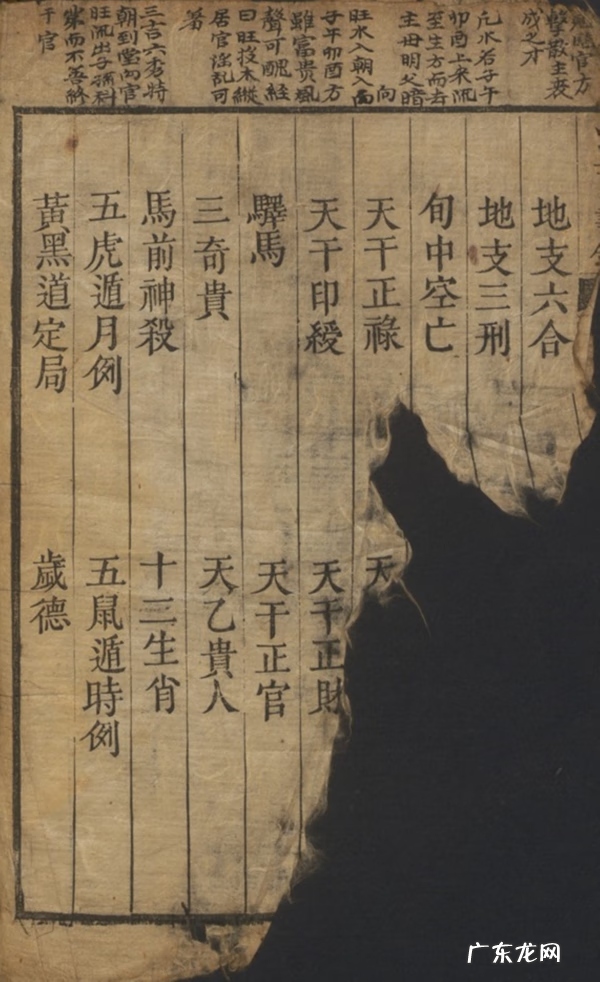 官方
擊散主喪
成之才
凡水若子午
卯酉上來流
至生方而去
主毋明父暗
向
旺水入朝入
子午卯酉方
雖富貴風
聲可醜經
曰旺投木縱
居官淫乱可
羞
三吉六秀時
朝到堂向官
旺流出子孫科
第而不善終
于官
地支六合
地支三刑
旬中空亡
天干正祿 天
天干印綬 天干正財
驛馬 天干正官
三奇貴 天乙貴人
馬前神殺 十三生肖
五虎遁月例 五鼠遁時例
黃黑道定局 歲德
广东龙网